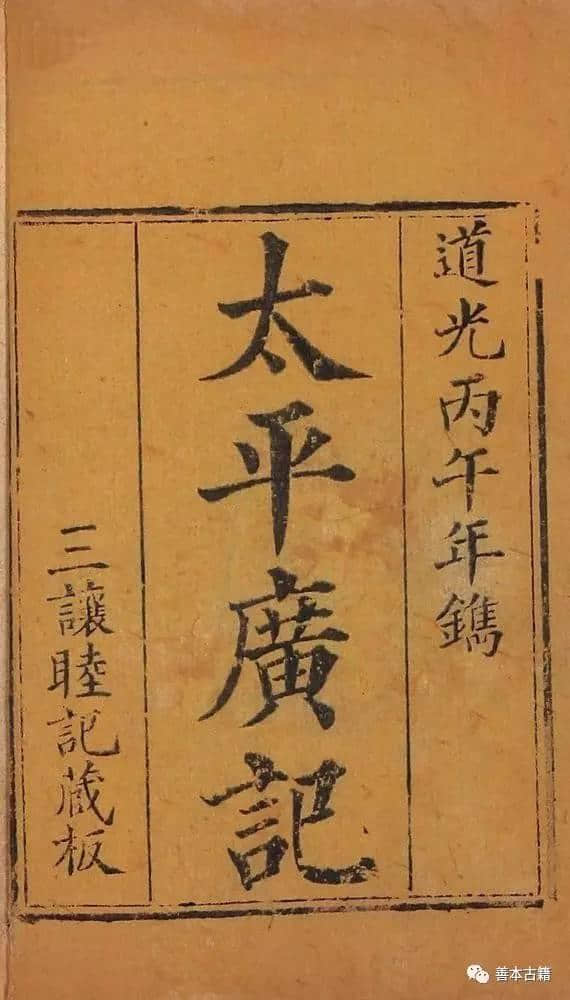 道光丙午年鐫
太平廣記
三讓睦記藏板
善本古籍